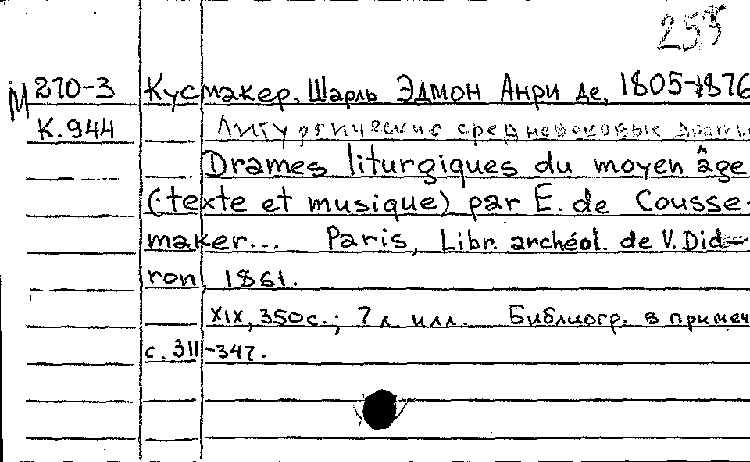 253
М 270-3 Кусмакер, Шарль Эдмон Анри де, 1805-1876
К.944 Литургические средневековые драмы
Drames liturgiques du moyen âge
(texte et musique) par E. de Cousse-
maker... Paris, Libr. archéol. de V. Did-
ron 1861.
XIX, 350с.; 7 л илл. Библиогр. в примеч
с. 311-347.